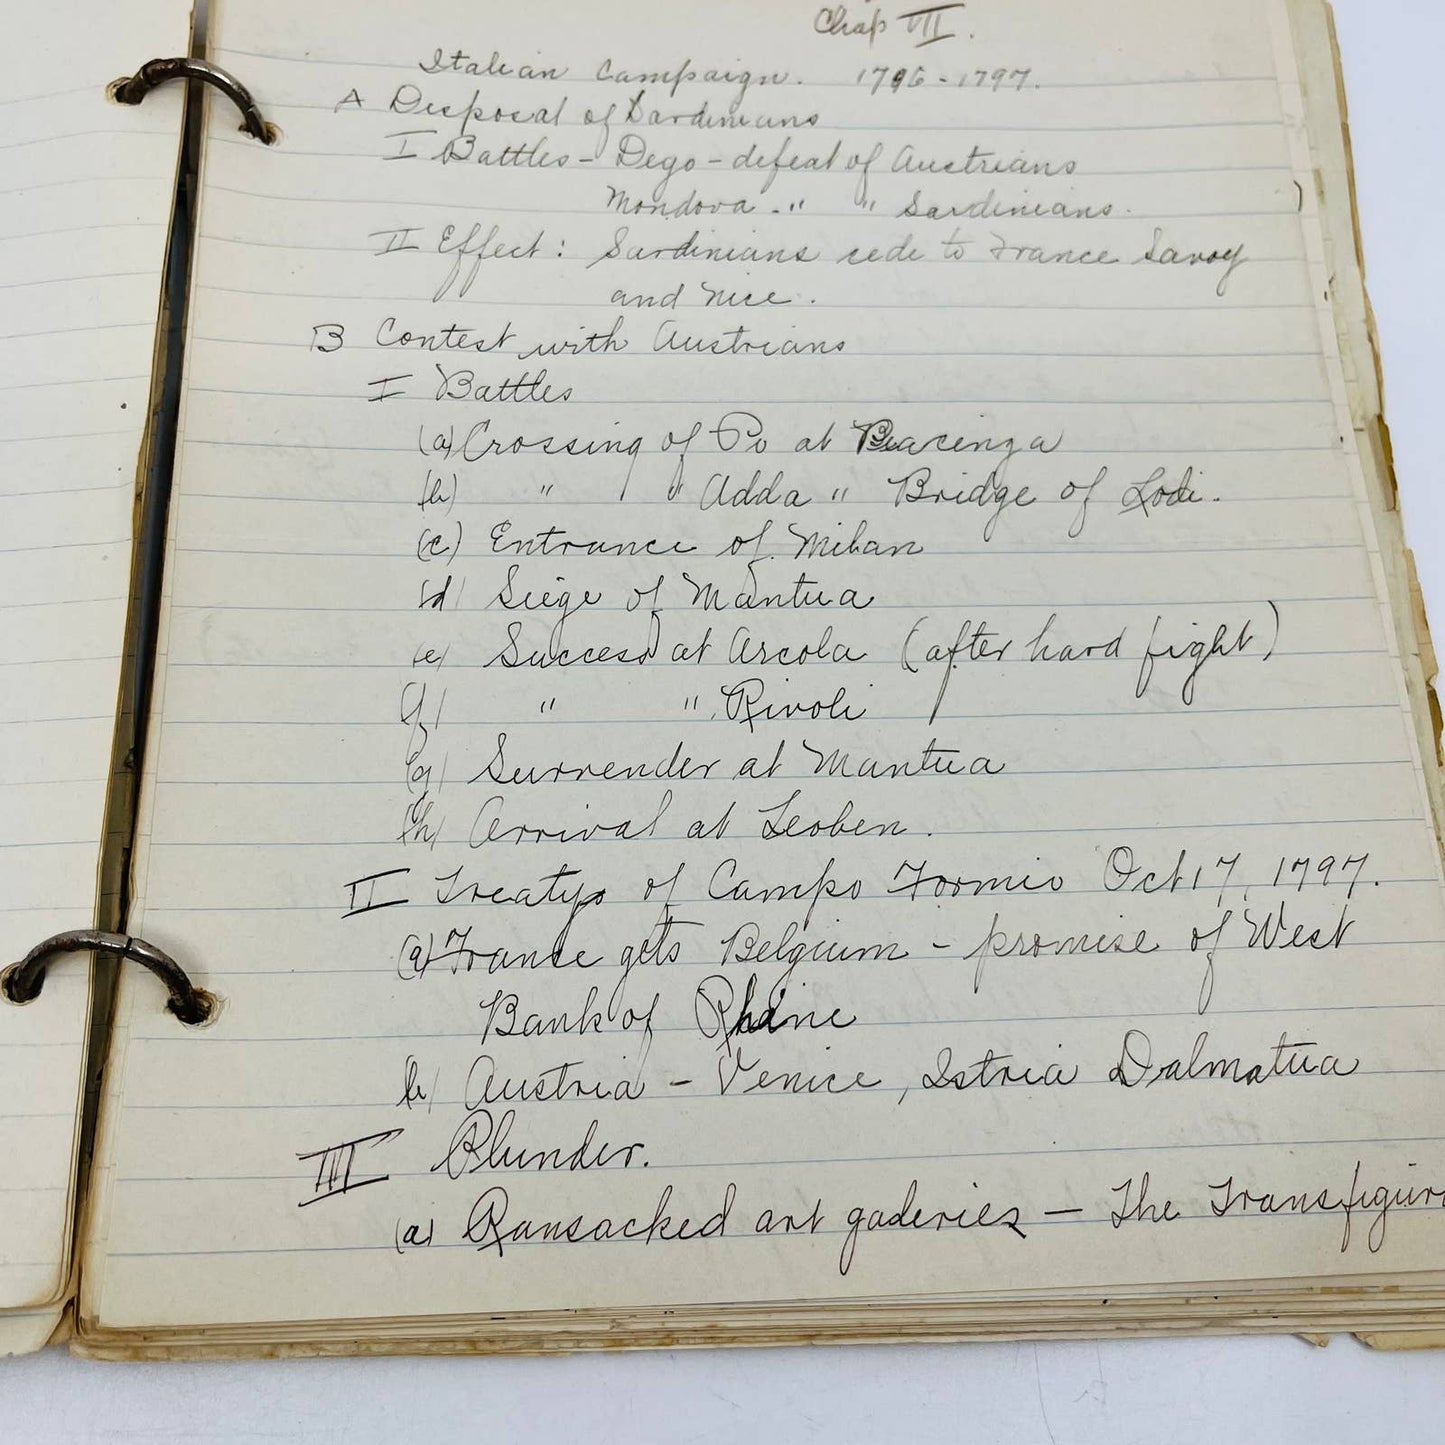 Chap VII.
Italian Campaign. 1796-1797.
A Disposal of Sardinians
I Battles - Dego - defeat of Austrians
Mondova - " " Sardinians.
II Effect: Sardinians cede to France Savoy
and Nice.
B Contest with Austrians
I Battles
(a) Crossing of Po at Piacenza
(b) " " Adda " Bridge of Lodi.
(c) Entrance of Milan
(d) Siege of Mantua
(e) Success at Arcola (after hard fight)
(f) " " Rivoli
(g) Surrender at Mantua
(h) Arrival at Leoben.
II Treaty of Campo Formio Oct 17, 1797.
(a) France gets Belgium - promise of West
Bank of Rhine
b) Austria - Venice, Istria Dalmatua
III Plunder.
(a) Ransacked art galleries - The Transfigur